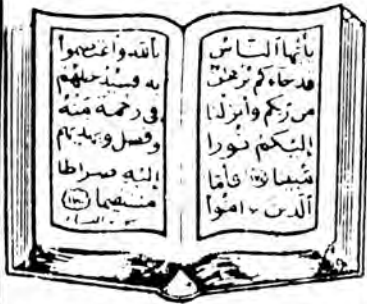 يأيها النَّاسُ
قد جَاءَكم برهَٰنٌ
من رَّبِّكم وأنزلنَا
إليكمْ نُورا
مُّبينا فأمَّا
الَّذين ءامنُوا
بالله واعتصمُوا
به فسيدخلهُمْ
في رحمة مّنهُ
وفضل ويهديهم
إليْه صراطا
مُّستقيما
سورة النساء